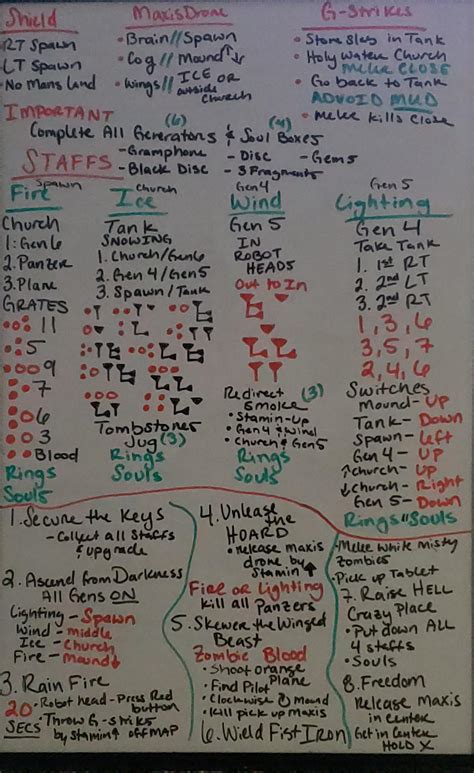 Shield
RT Spawn
LT Spawn
No Mans Land
MaxisDrone
• Brain//Spawn
• Cog//Mound↑↓
• Wings//ICE OR
outside
Church
G-Strikes
• Stone Slab in Tank
• Holy Water Church
Melee CLOSE
• Go back to Tank
ADVOID MUD
• Melee Kills Close
IMPORTANT
Complete All Generators (6) & Soul Boxes (4)
STAFFS
- Gramphone
- Black Disc
- Disc
- 3 Fragments
- Gems
Fire Spawn
Church
1. Gen 6
2. Panzer
3. Plane
GRATES
11
5
9
7
6
3
Blood
Rings
Souls
Ice Church
Tank
SNOWING
1. Church/Gen6
2. Gen 4/Gen5
3. Spawn/Tank
Tombstones
Jug (3)
Rings
Souls
Gen4
Wind
Gen 5
IN
ROBOT
HEADS
Out to In
Redirect (3)
Smoke
• Stamin-Up
• Gen 4 & Wind
• Church & Gen5
Rings
Souls
Gen 5
Lighting
Gen 4
Take Tank
1. 1st RT
2. 2nd LT
3. 2nd RT
1, 3, 6
3, 5, 7
2, 4, 6
Switches
Mound - Up
Tank - Down
Spawn - Left
Gen 4 - Up
↑Church - Up
↓Church - Right
Gen 5 - Down
Rings//Souls
1. Secure the Keys
- Collect all Staffs
& upgrade
2. Ascend from Darkness
All Gens ON
Lighting - Spawn
Wind - Middle
Ice - Church
Fire - Mound↓
3. Rain Fire
20 SECS
• Robot head - Press Red
button
• Throw G-strikes
by Stamin↑ off MAP
4. Unlease
the
HOARD
• release maxis
drone by
Stamin↑
Fire or Lighting
Kill all Panzers
5. Skewer the Winged
Beast
Zombie Blood
• Shoot orange
Plane
• Find Pilot
• Clockwise Mound
• Kill pick up Maxis
6. Wield Fist Iron
• Melee White Misty
Zombies
• Pick up Tablet
7. Raise HELL
Crazy Place
• Put down ALL
4 staffs
• Souls
8. Freedom
Release Maxis
in Center
Get in Center
HOLD X